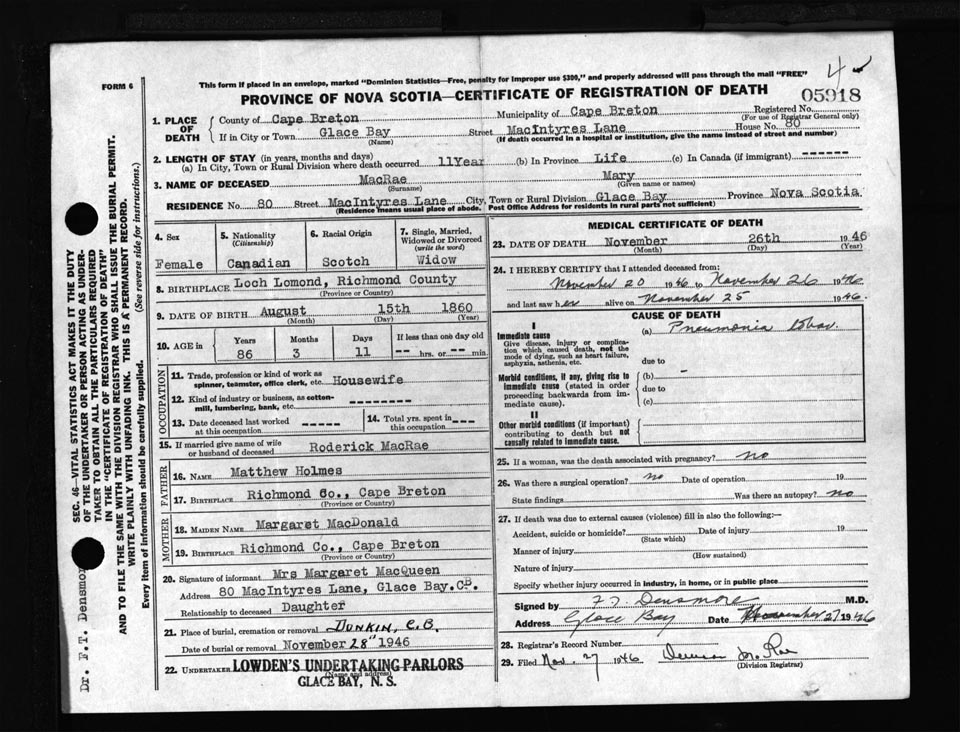 FORM 6
This form if placed in an envelope, marked "Dominion Statistics—Free, penalty for improper use $300," and properly addressed will pass through the mail "FREE"
4
PROVINCE OF NOVA SCOTIA—CERTIFICATE OF REGISTRATION OF DEATH
05918
1. PLACE OF DEATH
County of Cape Breton Municipality of Cape Breton Registered No.
(For use of Registrar General only)
If in City or Town Glace Bay Street MacIntyres Lane House No. 80
(Name) (If death occurred in a hospital or institution, give the name instead of street and number)
2. LENGTH OF STAY (in years, months and days)
(a) In City, Town or Rural Division where death occurred 11Year (b) In Province Life (c) In Canada (if immigrant) ------
3. NAME OF DECEASED MacRae Mary
(Surname) (Given name or names)
RESIDENCE No. 80 Street MacIntyres Lane City, Town or Rural Division Glace Bay Province Nova Scotia
(Residence means usual place of abode. Post Office Address for residents in rural parts not sufficient)
4. Sex Female
5. Nationality (Citizenship) Canadian
6. Racial Origin Scotch
7. Single, Married, Widowed or Divorced (write the word) Widow
8. BIRTHPLACE Loch Lomond, Richmond County
(Province or Country)
9. DATE OF BIRTH August 15th 1860
(Month) (Day) (Year)
10. AGE in Years 86 Months 3 Days 11 If less than one day old -- hrs. or -- min.
OCCUPATION
11. Trade, profession or kind of work as spinner, teamster, office clerk, etc. Housewife
12. Kind of industry or business, as cotton-mill, lumbering, bank, etc. -----
13. Date deceased last worked at this occupation -----
14. Total yrs. spent in this occupation ---
15. If married give name of wife or husband of deceased Roderick MacRae
FATHER
16. Name Matthew Holmes
17. Birthplace Richmond Co., Cape Breton
(Province or Country)
MOTHER
18. Maiden Name Margaret MacDonald
19. Birthplace Richmond Co., Cape Breton
(Province or Country)
20. Signature of informant Mrs Margaret MacQueen
Address 80 MacIntyres Lane, Glace Bay. CB.
Relationship to deceased Daughter
21. Place of burial, cremation or removal Dunkin, C.B.
Date of burial or removal November 28" 1946
22. Undertaker LOWDEN'S UNDERTAKING PARLORS
(Name and address)
GLACE BAY, N. S.
MEDICAL CERTIFICATE OF DEATH
23. DATE OF DEATH November 26th 1946
(Month) (Day) (Year)
24. I HEREBY CERTIFY that I attended deceased from:
November 20 1946 to November 26 1946
and last saw her alive on November 25 1946.
CAUSE OF DEATH
I
Immediate cause (a) Pneumonia lobar.
Give disease, injury or complication which caused death, not the mode of dying, such as heart failure, asphyxia, asthenia, etc.
due to
Morbid conditions, if any, giving rise to immediate cause (stated in order proceeding backwards from immediate cause).
(b) -
due to
(c)
II
Other morbid conditions (if important) contributing to death but not causally related to immediate cause.
25. If a woman, was the death associated with pregnancy? no
26. Was there a surgical operation? no Date of operation 19
State findings Was there an autopsy? no
27. If death was due to external causes (violence) fill in also the following:—
Accident, suicide or homicide? Date of injury 19
(State which)
Manner of injury
(How sustained)
Nature of injury
Specify whether injury occurred in industry, in home, or in public place
Signed by F. T. Densmore M.D.
Address Glace Bay Date November 27 1946
28. Registrar's Record Number
29. Filed Nov. 27 1946
(Division Registrar)
SEC. 46—VITAL STATISTICS ACT MAKES IT THE DUTY
OF THE UNDERTAKER OR PERSON ACTING AS UNDER-
TAKER TO OBTAIN ALL THE PARTICULARS REQUIRED
IN THE "CERTIFICATE OF REGISTRATION OF DEATH"
AND TO FILE THE SAME WITH THE DIVISION REGISTRAR WHO SHALL ISSUE THE BURIAL PERMIT.
WRITE PLAINLY WITH UNFADING INK. THIS IS A PERMANENT RECORD.
(See reverse side for instructions.)
Every item of information should be carefully supplied.
Dr. F.T. Densmor